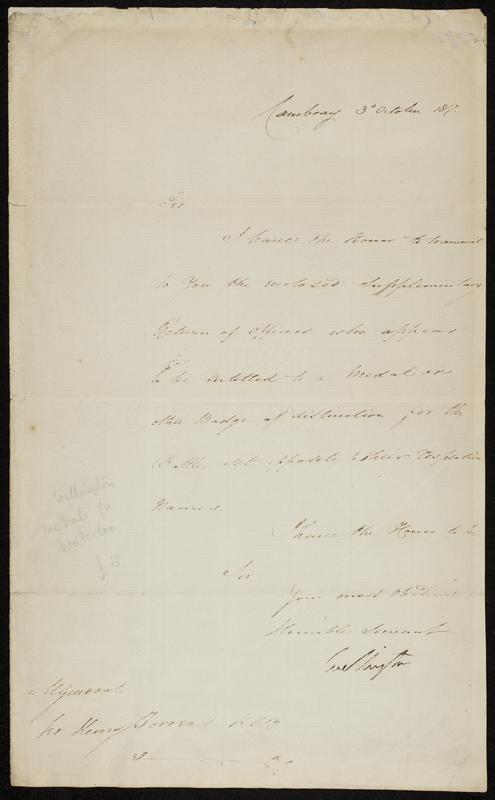 Cambray 3d October 1817.
Sir
I have the Honor to transmit
to You the enclosed Supplementary
Return of Officers who appear
to be entitled to a Medal or
other Badge of distinction for the
Battles set opposite to their respective
Names.
I have the Honor to be
Sir
Your most Obedient
Humble Servant
Wellington
Wellington
medals for
Waterloo.
£15
M General
Sir Henry Torrens KCB